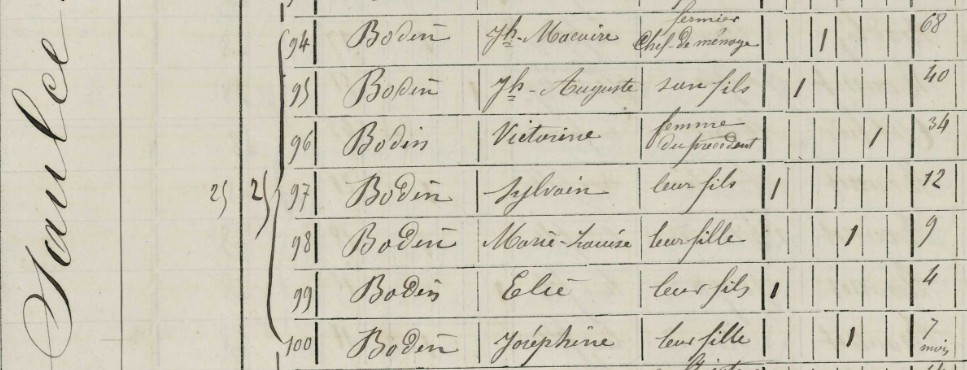 Saulce
94 Bodin Jh-Macaire fermier Chef-de ménage 1 68
95 Bodin Jh-Auguste son fils 1 40
96 Bodin Victorine femme du précédent 1 34
25 25 97 Bodin Sylvain leur fils 1 12
98 Bodin Marie-Louise leur fille 1 9
99 Bodin Elie leur fils 1 4
100 Bodin Joséphine leur fille 1 7 mois